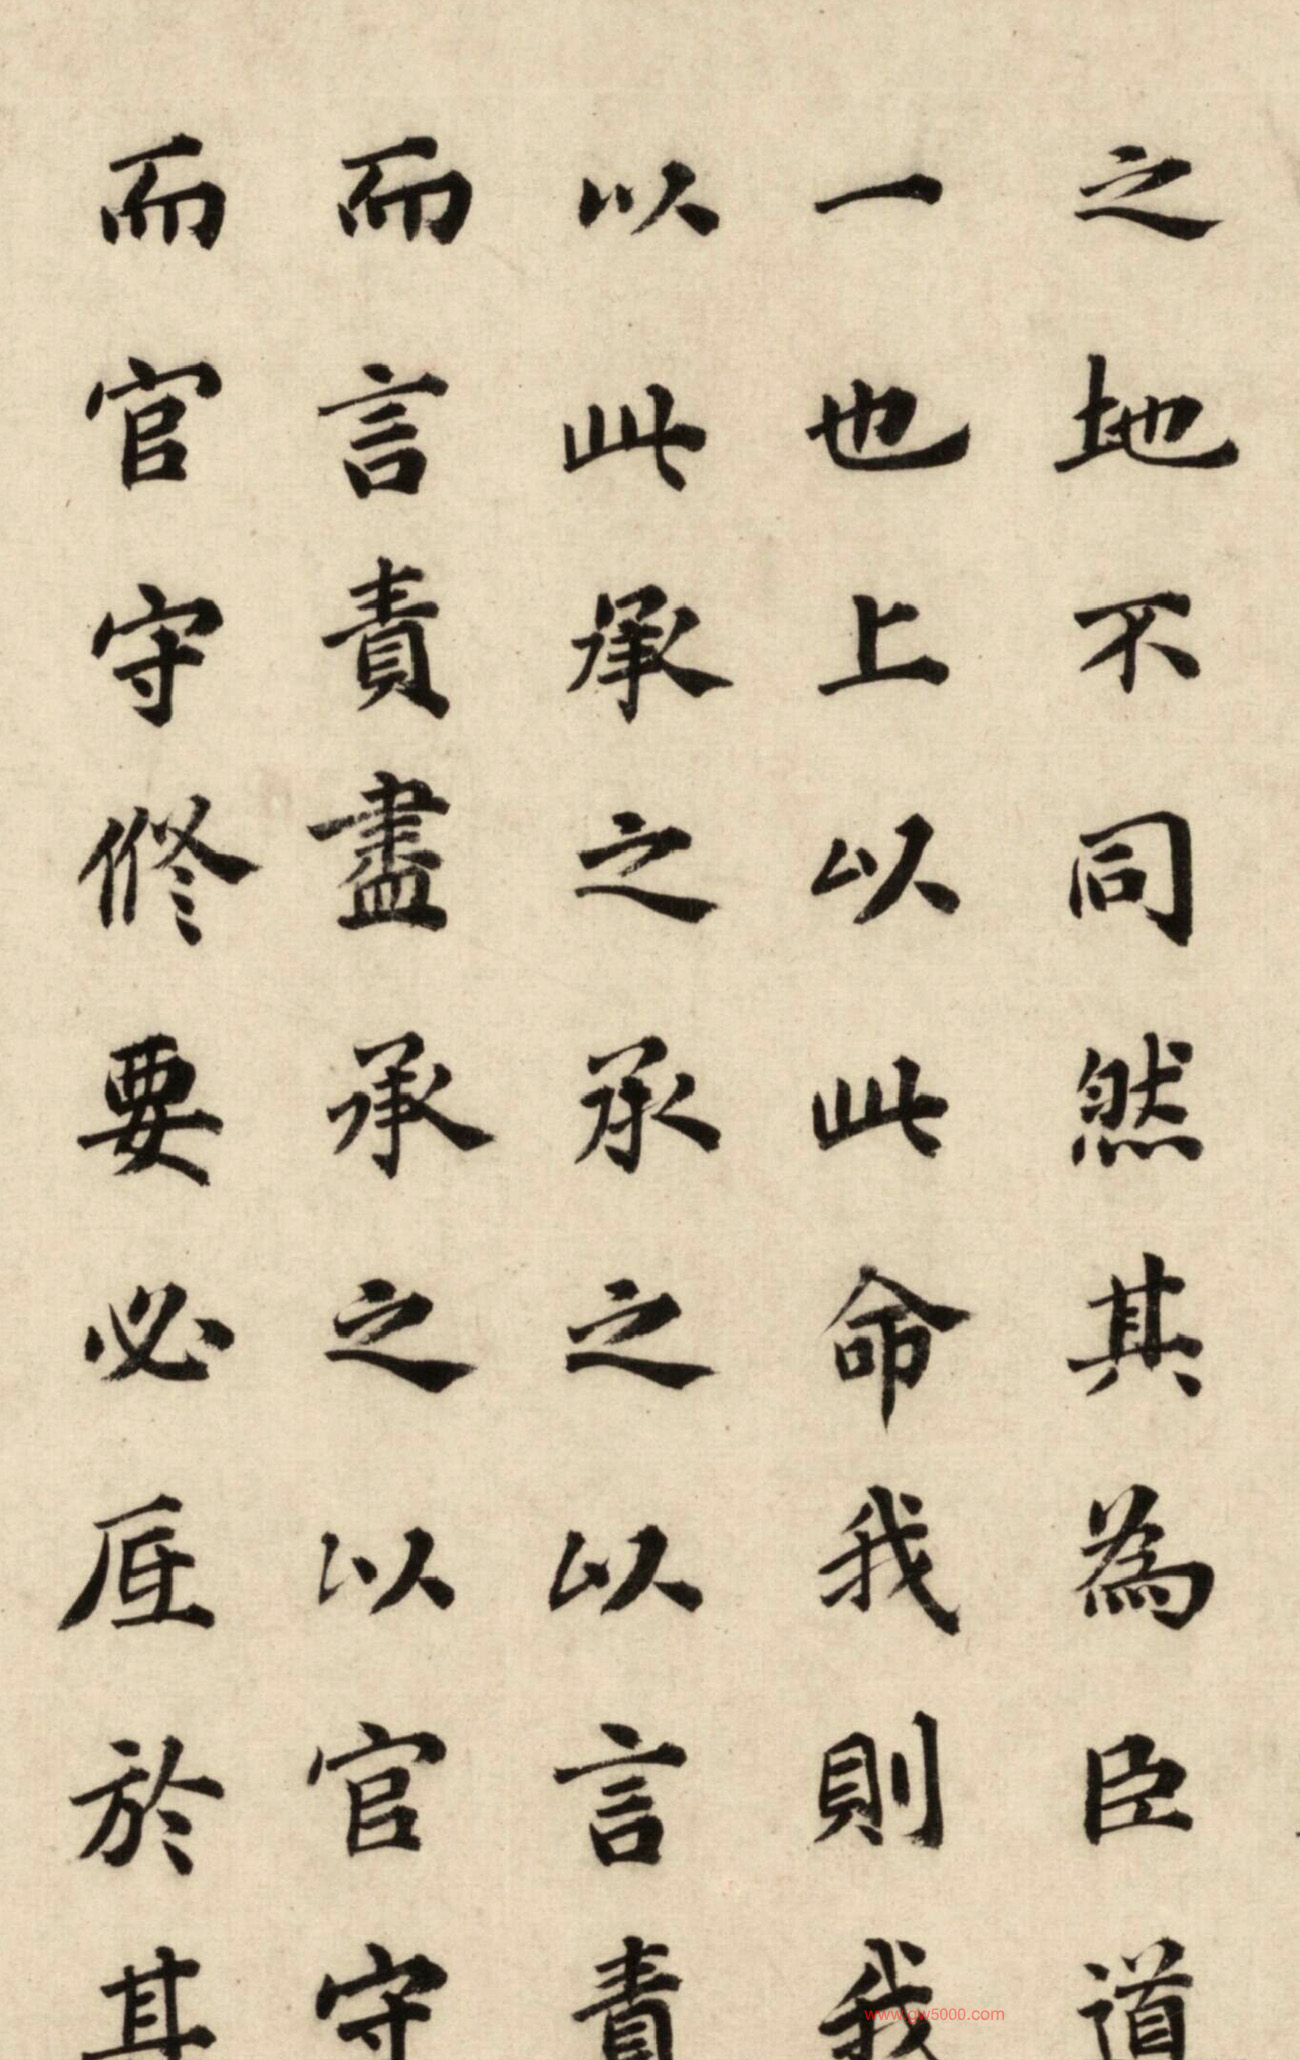 之地不同然其為臣道
一也上以此命我則我
以此承之承之以言責
而言責盡承之以官守
而官守修要必厎於其
www.gw5000.com